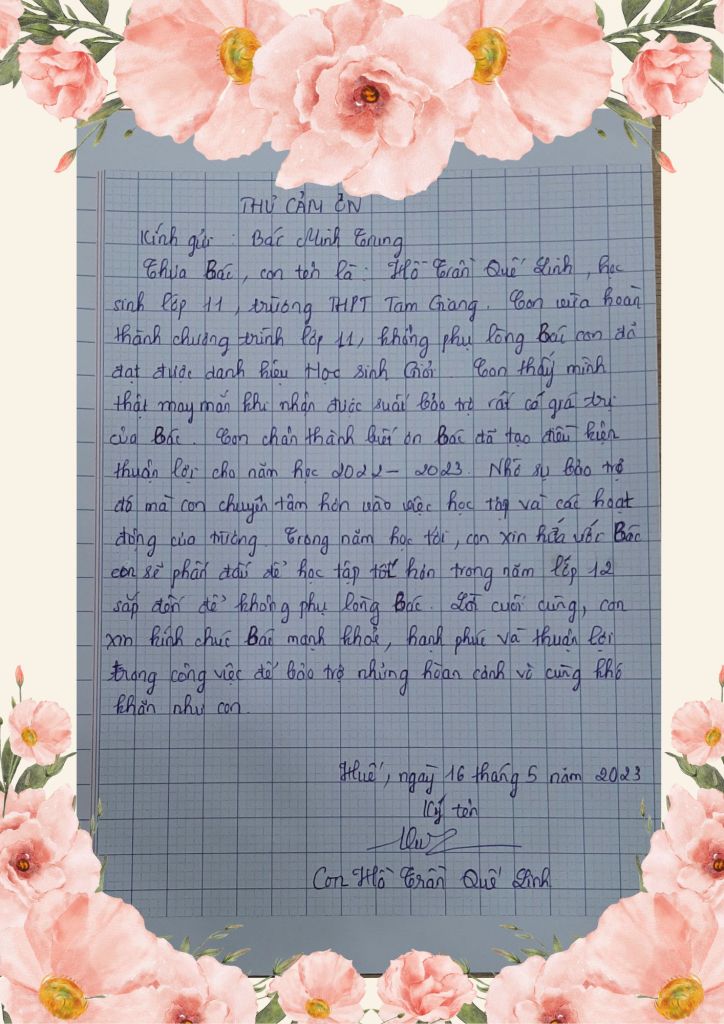 THƯ CẢM ƠN
Kính gửi : Bác Minh Trung
Thưa Bác, con tên là : Hồ Trần Quế Linh, học
sinh lớp 11, trường THPT Tam Giang. Con vừa hoàn
thành chương trình lớp 11, không phụ lòng Bác con đã
đạt được danh hiệu Học sinh Giỏi. Con thấy mình
thật may mắn khi nhận được suất bảo trợ rất có giá trị
của Bác. Con chân thành biết ơn Bác đã tạo điều kiện
thuận lợi cho năm học 2022 - 2023. Nhờ sự bảo trợ
đó mà con chuyên tâm hơn vào việc học tập và các hoạt
động của trường. Trong năm học tới, con xin hứa với Bác
con sẽ phấn đấu để học tập tốt hơn trong năm lớp 12
sắp đến để không phụ lòng Bác. Lời cuối cùng, con
xin kính chúc Bác mạnh khoẻ, hạnh phúc và thuận lợi
trong công việc để bảo trợ những hoàn cảnh vô cùng khó
khăn như con.
Huế, ngày 16 tháng 5 năm 2023
Ký tên
Con Hồ Trần Quế Linh